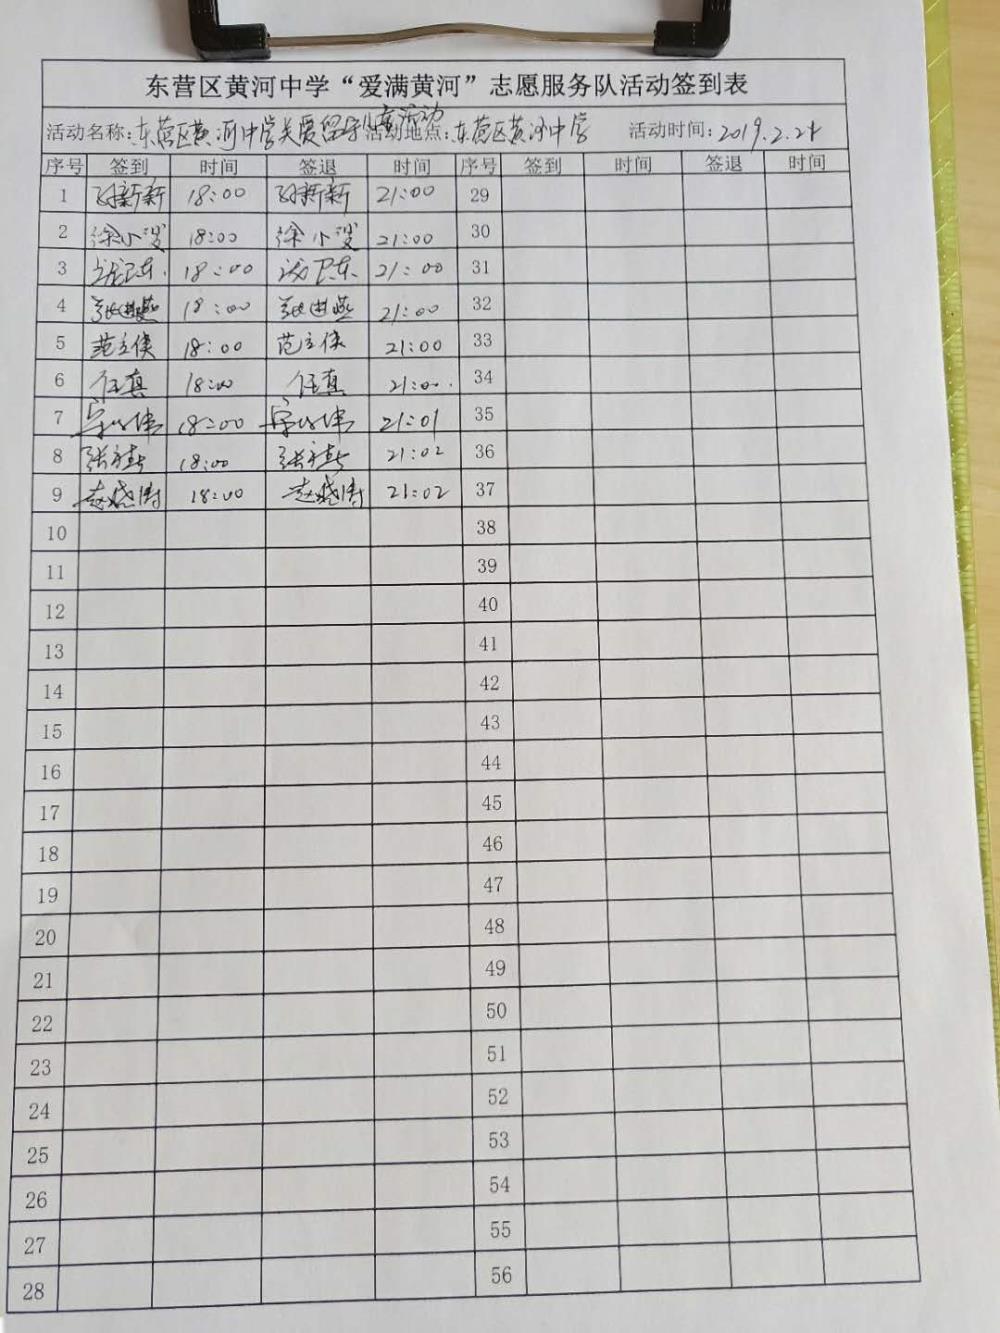 东营区黄河中学“爱满黄河”志愿服务队活动签到表
活动名称：东营区黄河中学关爱留守儿童活动 活动地点：东营区黄河中学 活动时间：2019.2.21
序号 签到 时间 签退 时间 序号 签到 时间 签退 时间
1 孙新新 18:00 孙新新 21:00 29
2 徐小漫 18:00 徐小漫 21:00 30
3 卫东 18:00 卫东 21:00 31
4 张世燕 18:00 张世燕 21:00 32
5 范立侠 18:00 范立侠 21:00 33
6 任真 18:00 任真 21:00 34
7 伟 18:00 伟 21:01 35
8 张 18:00 张 21:02 36
9 赵晓涛 18:00 赵晓涛 21:02 37
10 38
11 39
12 40
13 41
14 42
15 43
16 44
17 45
18 46
19 47
20 48
21 49
22 50
23 51
24 52
25 53
26 54
27 55
28 56